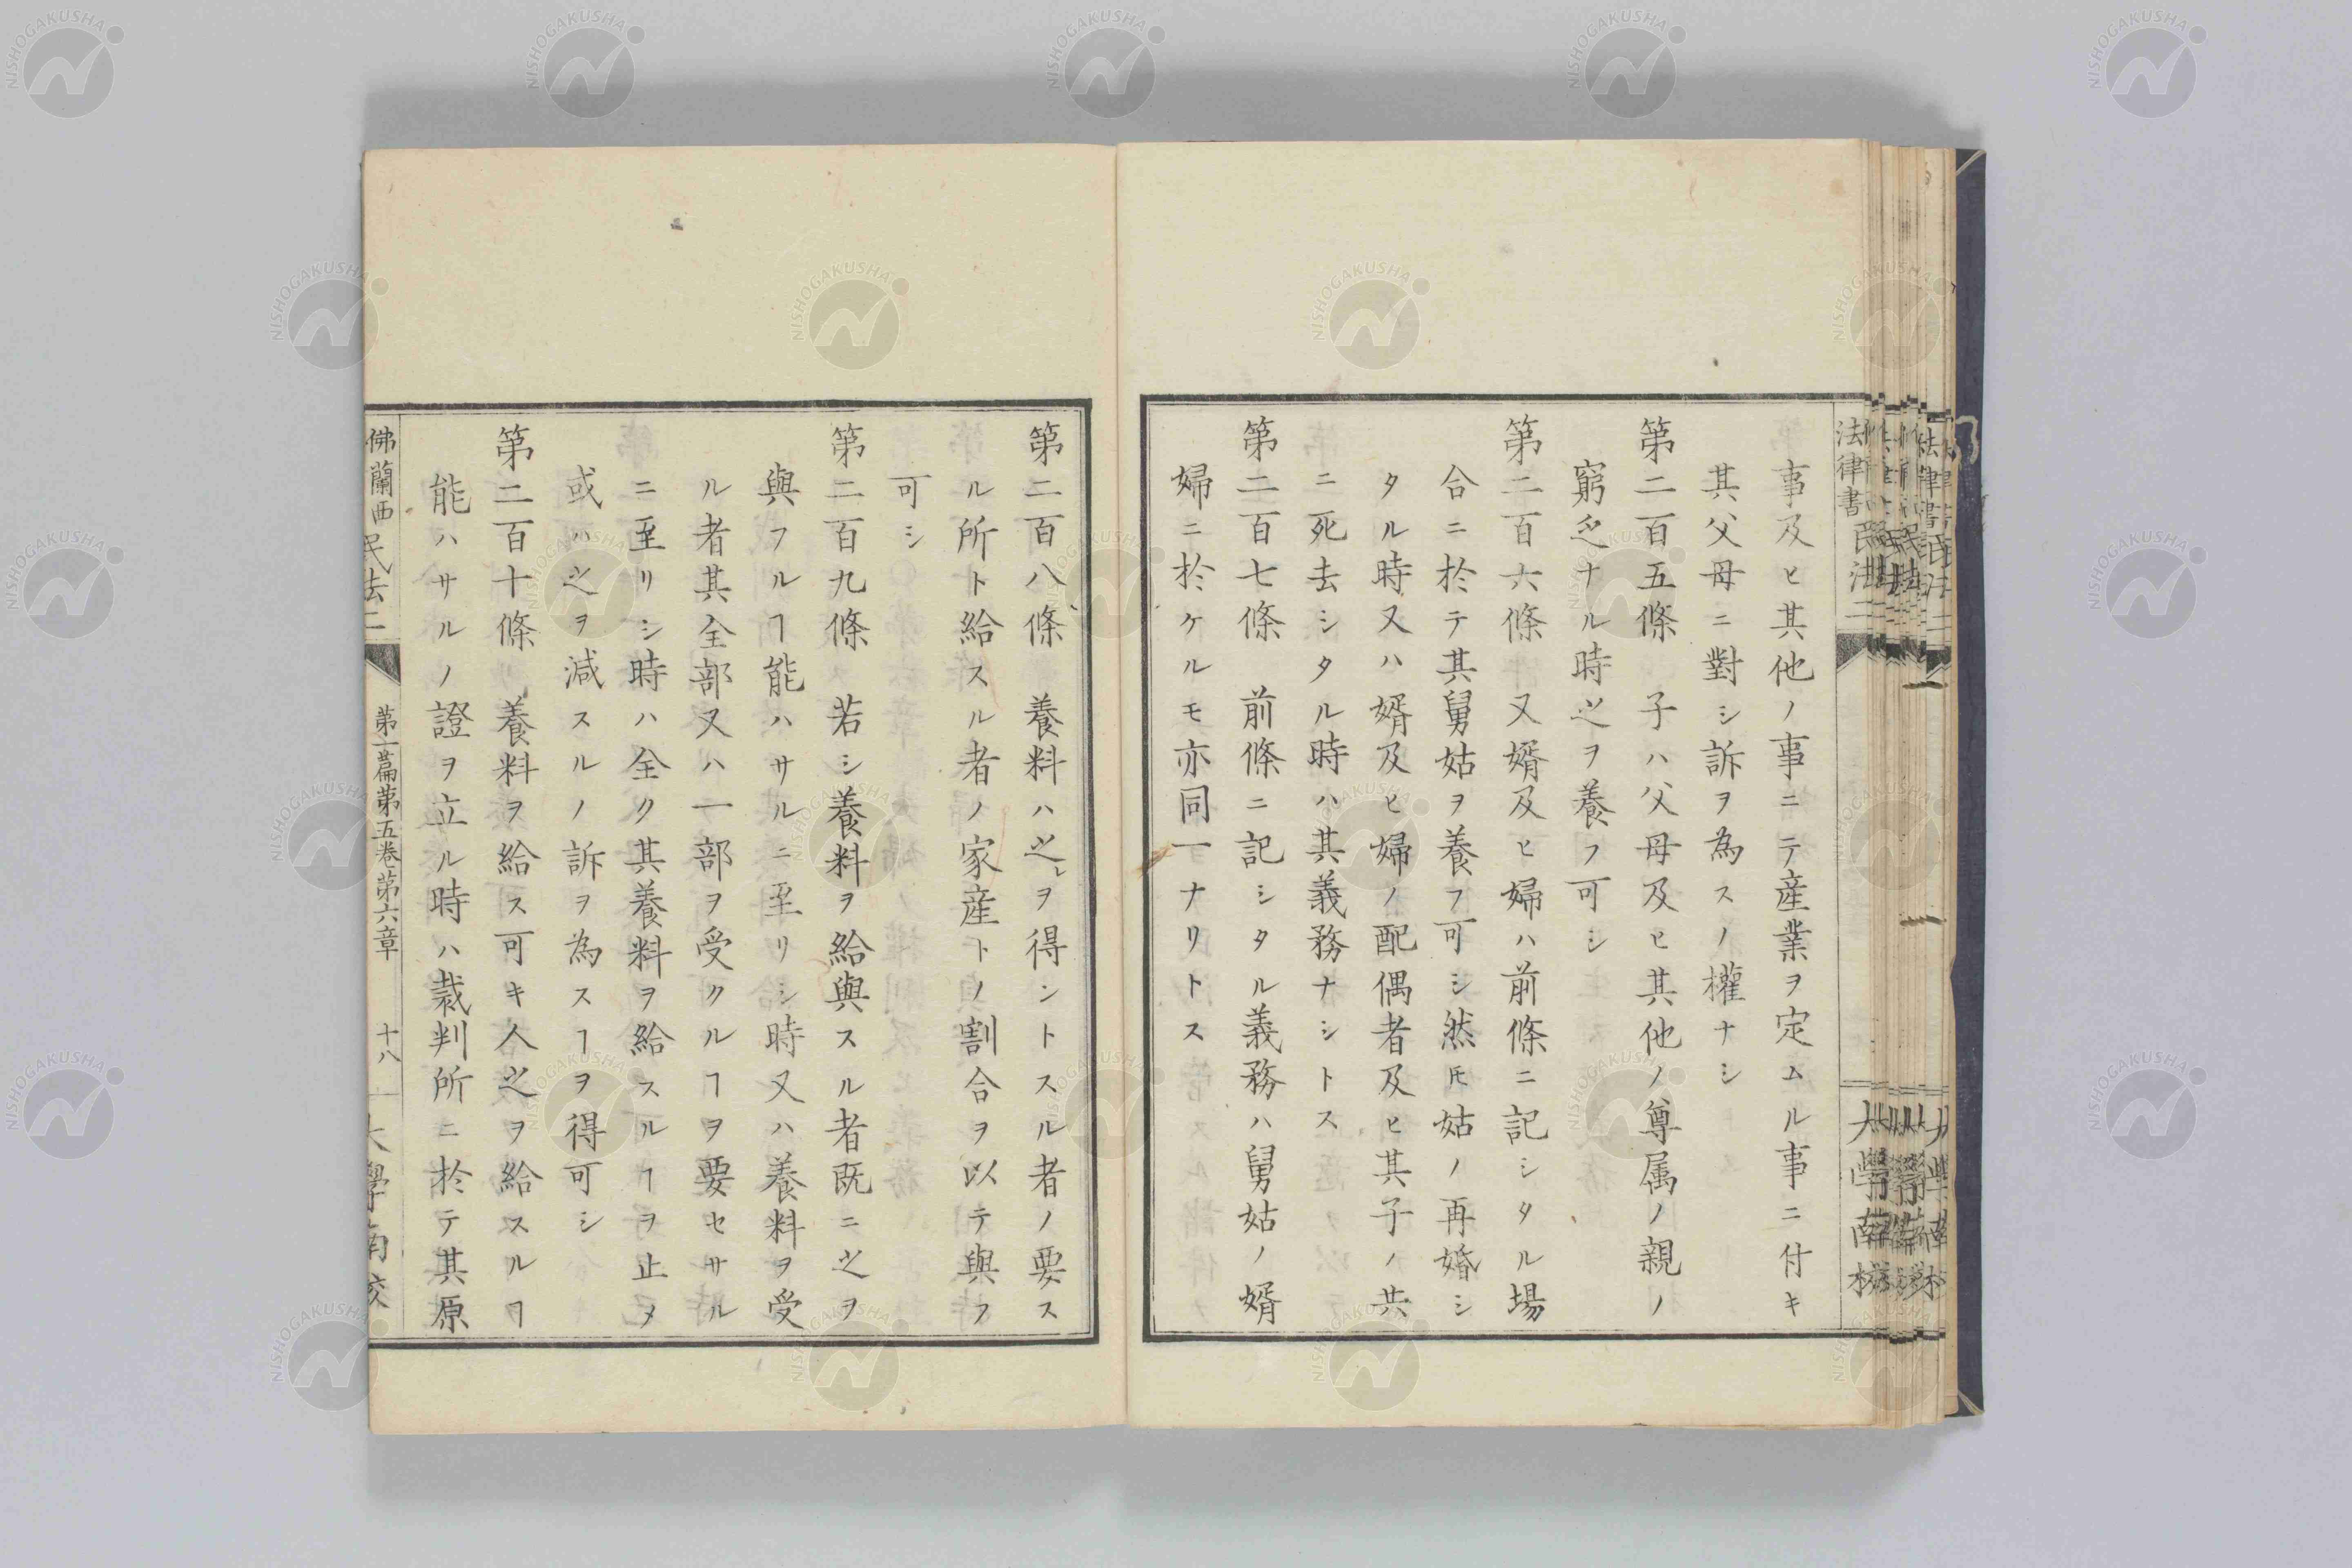 事及ヒ其他ノ事ニテ産業ヲ定ムル事ニ付キ
其父母ニ對シ訴ヲ為スノ權ナシ
第二百五條　子ハ父母及ヒ其他ノ尊属ノ親ノ
窮乏ナル時之ヲ養フ可シ
第二百六條　又婿及ヒ婦ハ前條ニ記シタル場
合ニ於テ其舅姑ヲ養フ可シ然𪜈姑ノ再婚シ
タル時又ハ婿及ヒ婦ノ配偶者及ヒ其子ノ共
ニ死去シタル時ハ其義務ナシトス
第二百七條　前條ニ記シタル義務ハ舅姑ノ婿
婦ニ於ケルモ亦同一ナリトス
第二百八條　養料ハ之レヲ得ントスル者ノ要ス
ル所ト給スル者ノ家産トノ割合ヲ以テ與フ
可シ
第二百九條　若シ養料ヲ給與スル者既ニ之ヲ
與フルヿ能ハサルニ至リシ時又ハ養料ヲ受
ル者其全部又ハ一部ヲ受クルヿヲ要セサル
ニ至リシ時ハ全ク其養料ヲ給スルヿヲ止メ
或ハ之ヲ減スルノ訴ヲ為スヿヲ得可シ
第二百十條　養料ヲ給ス可キ人之ヲ給スルヿ
能ハサルノ證ヲ立ル時ハ裁判所ニ於テ其原
佛蘭西民法二　第一篇第五巻第六章　十八　大學南校
法律書　民法二　大學南校
NISHOGAKUSHA